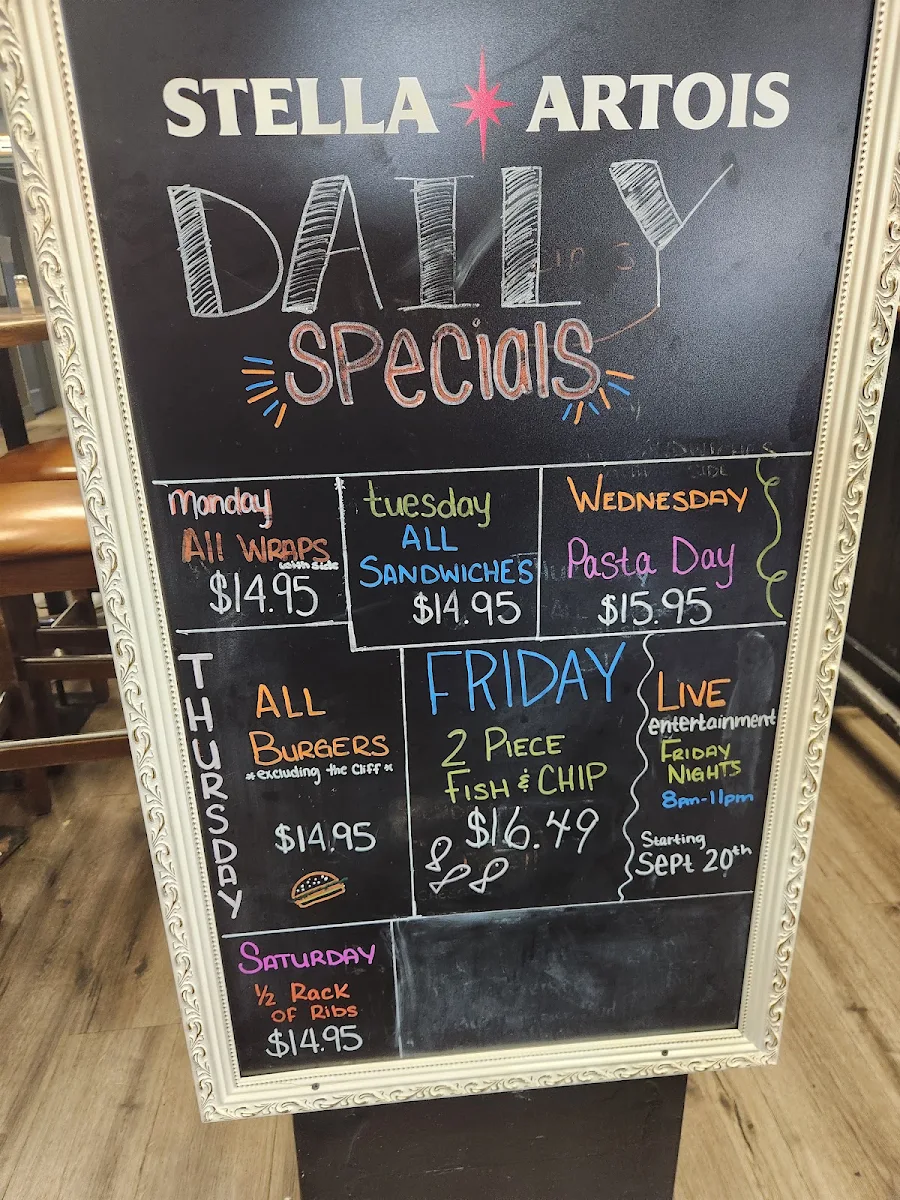 STELLA ARTOIS
DAILY
SPecials
Monday
All WRAPS
with side
$14.95
tuesday
ALL
SANDWICHES
$14.95
WEDNESDAY
Pasta Day
$15.95
THURSDAY
ALL
BURGERS
*excluding the Cliff*
$14.95
FRIDAY
2 PIECE
FISH & CHIP
$16.49
LIVE
entertainment
FRIDAY
NIGHTS
8pm-11pm
Starting
Sept 20th
SATURDAY
1/2 Rack
OF RIBS
$14.95